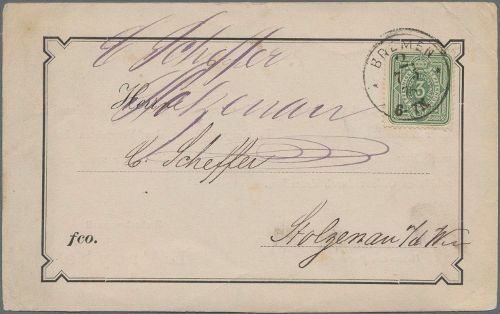 C. Scheffer
Stolzenau
BREMEN
3
Herrn
C. Scheffer
fco.
Stolzenau a/d